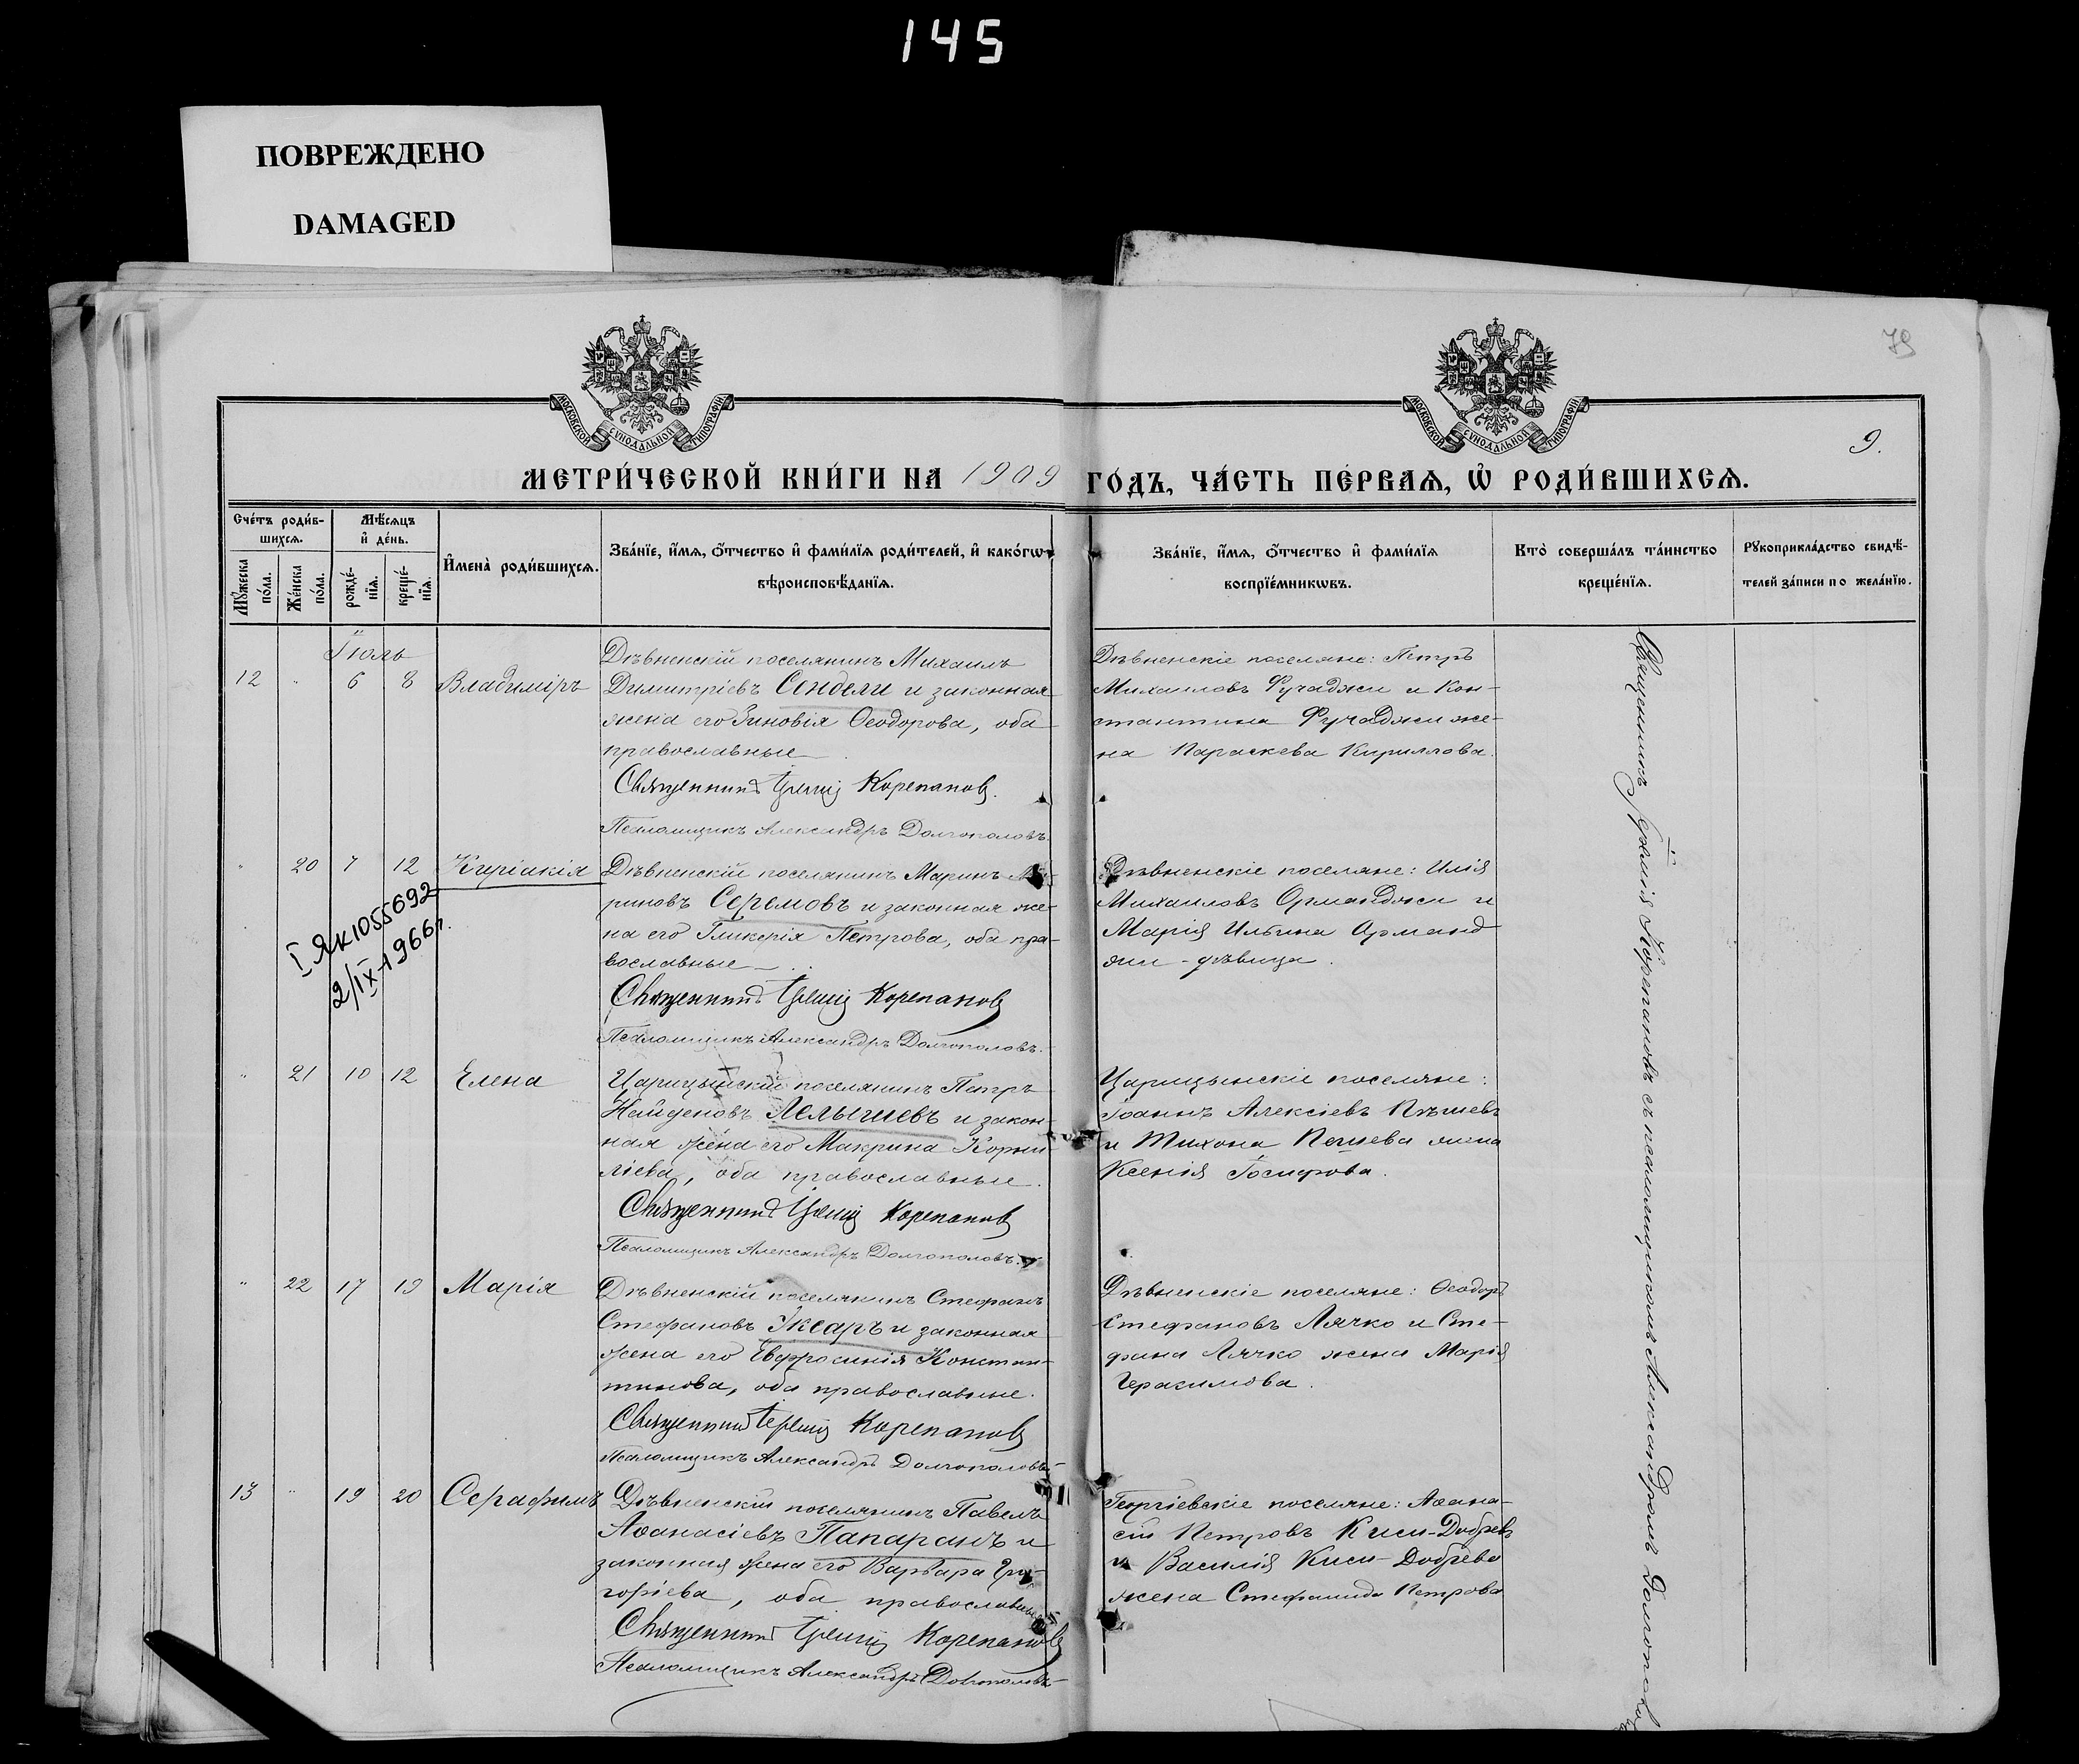 145
ПОВРЕЖДЕНО
DAMAGED
79
МОСКОВСКОЙ СУНОДАЛЬНОЙ ТИПОГРАФІИ
МОСКОВСКОЙ СУНОДАЛЬНОЙ ТИПОГРАФІИ
9.
МЕТРИ́ЧЕСКОЙ КНИ́ГИ НА 1909 ГО́ДЪ, ЧА́СТЬ ПЕ́РВАѦ, Ѡ҆ РОДИ́ВШИХСѦ.
Сче́тъ роди́в-
шихсѧ.
Мꙋ́жеска
по́ла.
Же́нска
по́ла.
Мѣ́сѧцъ
и҆ де́нь.
рожде́-
нїѧ.
креще́-
нїѧ.
И҆мена̀ роди́вшихсѧ.
Зва́нїе, и҆́мѧ, ѻ҆́тчество и҆ фами́лїѧ роди́телей, и҆ како́гѡ
вѣроисповѣ́данїѧ.
Зва́нїе, и҆́мѧ, ѻ҆́тчество и҆ фами́лїѧ
воспрїе́мникѡвъ.
Кто̀ соверша́лъ та́инство
креще́нїѧ.
Рꙋкоприкла́дство свидѣ́-
телей за́писи по жела́нїю.
Іюль
12 " 6 8 Владиміръ
Дѣвненскій поселянинъ Михаилъ
Димитріевъ Сендели и законная
жена его Зиновія Ѳеодорова, оба
православные
Священникъ Іеремія Корепановъ.
Псаломщикъ Александръ Долгополовъ.
Дѣвненскіе поселяне: Петръ
Михаиловъ Фучаджи и Кон-
стантина Фучаджи же-
на Параскева Кириллова.
" 20 7 12 Киріакія
I ЯК 1055692
2/IX-1966г.
Дѣвненскій поселянинъ Маринъ
риновъ Серемовъ и законная же-
на его Гликерія Петрова, оба пра-
вославные
Священникъ Іеремія Корепановъ
Псаломщикъ Александръ Долгополовъ.
Дѣвненскіе поселяне: Илія
Михаиловъ Орманджи и
Марія Ильина Орманд-
жи - дѣвица.
" 21 10 12 Елена
Царицынскій поселянинъ Петръ
Найденовъ Лелычиевъ и закон
ная жена его Макрина Корни
ліева, оба православные.
Священникъ Іеремія Корепановъ
Псаломщикъ Александръ Долгополовъ.
Царицынскіе поселяне:
Іоаннъ Алексіевъ Пѣшевъ
и Тихона Пешева жена
Ксенія Іосифова.
" 22 17 19 Марія
Дѣвненскій поселянинъ Стефанъ
Стефановъ Иксаръ и законная
жена его Евфросинія Констан-
тинова, оба православные.
Священникъ Іеремія Корепановъ
Псаломщикъ Александръ Долгополовъ
Дѣвненскіе поселяне: Ѳеодоръ
Стефановъ Лячко и Сте-
фана Лячко жена Марія
Герасимова.
13 " 19 20 Серафимъ
Дѣвненскій поселянинъ Павелъ
Аѳанасіевъ Папаранъ и
законная жена его Варвара Гри-
горіева, оба православные
Священникъ Іеремія Корепановъ
Псаломщикъ Александръ Долгополовъ
Георгіевскіе поселяне: Аѳана-
сій Петровъ Киси-Добревъ
и Василія Киси-Добрева
жена Стефанида Петрова
Священникъ Іеремія Корепановъ съ псаломщикомъ Александромъ Долгополовымъ